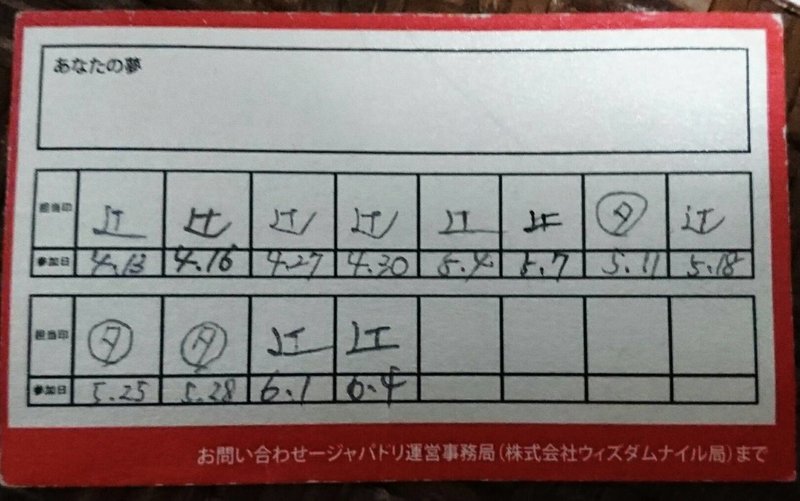 あなたの夢
担当印 辻 辻 辻 辻 辻 辻 タ 辻
参加日 4.13 4.16 4.27 4.30 5.4 5.7 5.11 5.18
担当印 タ タ 辻 辻
参加日 5.25 5.28 6.1 6.4
お問い合わせージャパドリ運営事務局(株式会社ウィズダムナイル局)まで